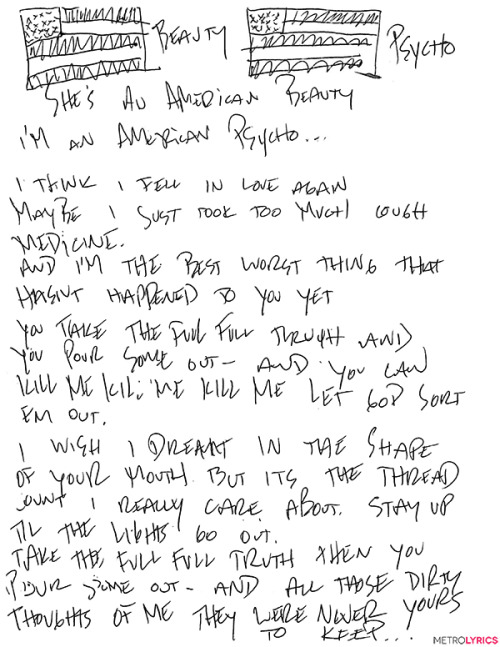 BEAUTY
PSYCHO
SHE'S AN AMERICAN BEAUTY
I'M AN AMERICAN PSYCHO...
I THINK I FELL IN LOVE AGAIN
MAYBE I JUST TOOK TOO MUCH COUGH
MEDICINE.
AND I'M THE BEST WORST THING THAT
HASN'T HAPPENED TO YOU YET
YOU TAKE THE FULL FULL TRUTH AND
YOU POUR SOME OUT - AND YOU CAN
KILL ME KILL ME KILL ME LET GOD SORT
EM OUT.
I WISH I DREAMT IN THE SHAPE
OF YOUR MOUTH. BUT ITS THE THREAD
COUNT I REALLY CARE ABOUT. STAY UP
TIL THE LIGHTS GO OUT.
TAKE THE FULL FULL TRUTH THEN YOU
POUR SOME OUT - AND ALL THOSE DIRTY
THOUGHTS OF ME THEY WERE NEVER YOURS
TO KEEP...
METROLYRICS